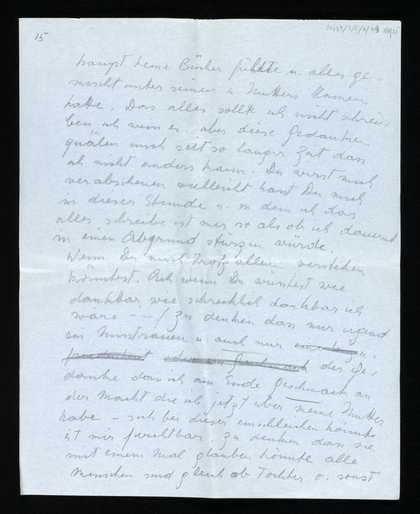 15
haupt keine Bücher führte u. alles ge-
macht unter seinen u. Mutters Namen
hatte. Das alles sollte ich nicht schrei-
ben ich weiss es, aber diese Gedanken
quälen mich seit so langer Zeit dass
ich nicht anders kann. Du wirst mich
verabscheuen vielleicht hast Du mich
in dieser Stunde u. in dem ich das
alles schreibe ist mir so als ob ich dauernd
in einen Abgrund stürzen würde.
Wenn Du mich trotz allem verstehen
könntest. Ach wenn Du wüsstest wie
dankbar wie schrecklich dankbar ich
wäre - - -! Zu denken dass nur irgend
ein Misstrauen u. auch nur
der Ge-
danke dass ich am Ende Geschmack an
der Macht die ich jetzt über meine Mutter
habe - sich bei dieser einschleichen könnte
ist mir furchtbar. Zu denken dass sie
mit einem Mal glauben könnte alle
Menschen sind gleich ob Tochter o. sonst